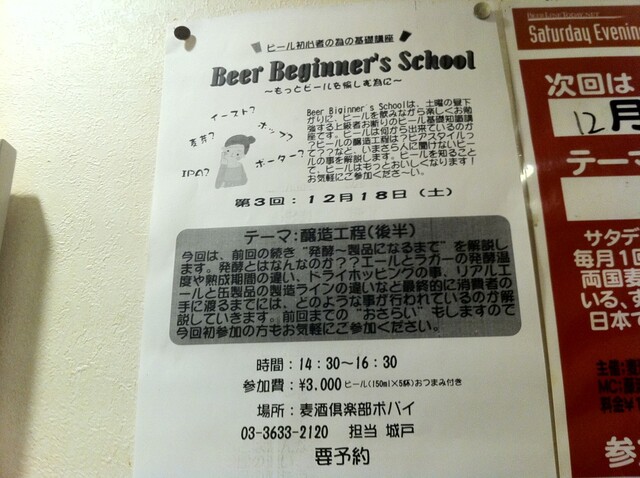 ビール初心者の為の基礎講座
Beer Beginner's School
～もっとビールを愉しむ為に～
イースト？
麦芽？
ホップ？
IPA？
ポーター？
Beer Biginner's Schoolは、土曜の昼下
がりに、ビールを飲みながら楽しくお勉
強する上級者お断りのビール基礎知識講
座です。ビールは何から出来ているのか
？ビールの醸造工程は？ビアスタイルっ
て？っなど、いまさら人に聞けないビー
ルの事を解説します。ビールを知ること
で、ビールはもっとおいしくなります！
お気軽にご参加くださーい。
第３回：１２月１８日（土）
テーマ：醸造工程（後半）
今回は、前回の続き“発酵～製品になるまで”を解説し
ます。発酵とはなんなのか？？エールとラガーの発酵温
度や熟成期間の違い、ドライホッピングの事、リアルエ
ールと缶製品の製造ラインの違いなど最終的に消費者の
手に渡るまでには、どのような事が行われているのか解
説していきます。前回までの“おさらい”もしますので
今回初参加の方もお気軽にご参加ください。
時間：14：30～16：30
参加費：¥3,000 ビール(150ml×5杯)おつまみ付き
場所：麦酒倶楽部ポパイ
03-3633-2120 担当 城戸
要予約
Saturday Evening
次回は
12月
テーマ
サタデ
毎月１回
両国麦
いる、
日本で
主催：麦
MC：
料金
参